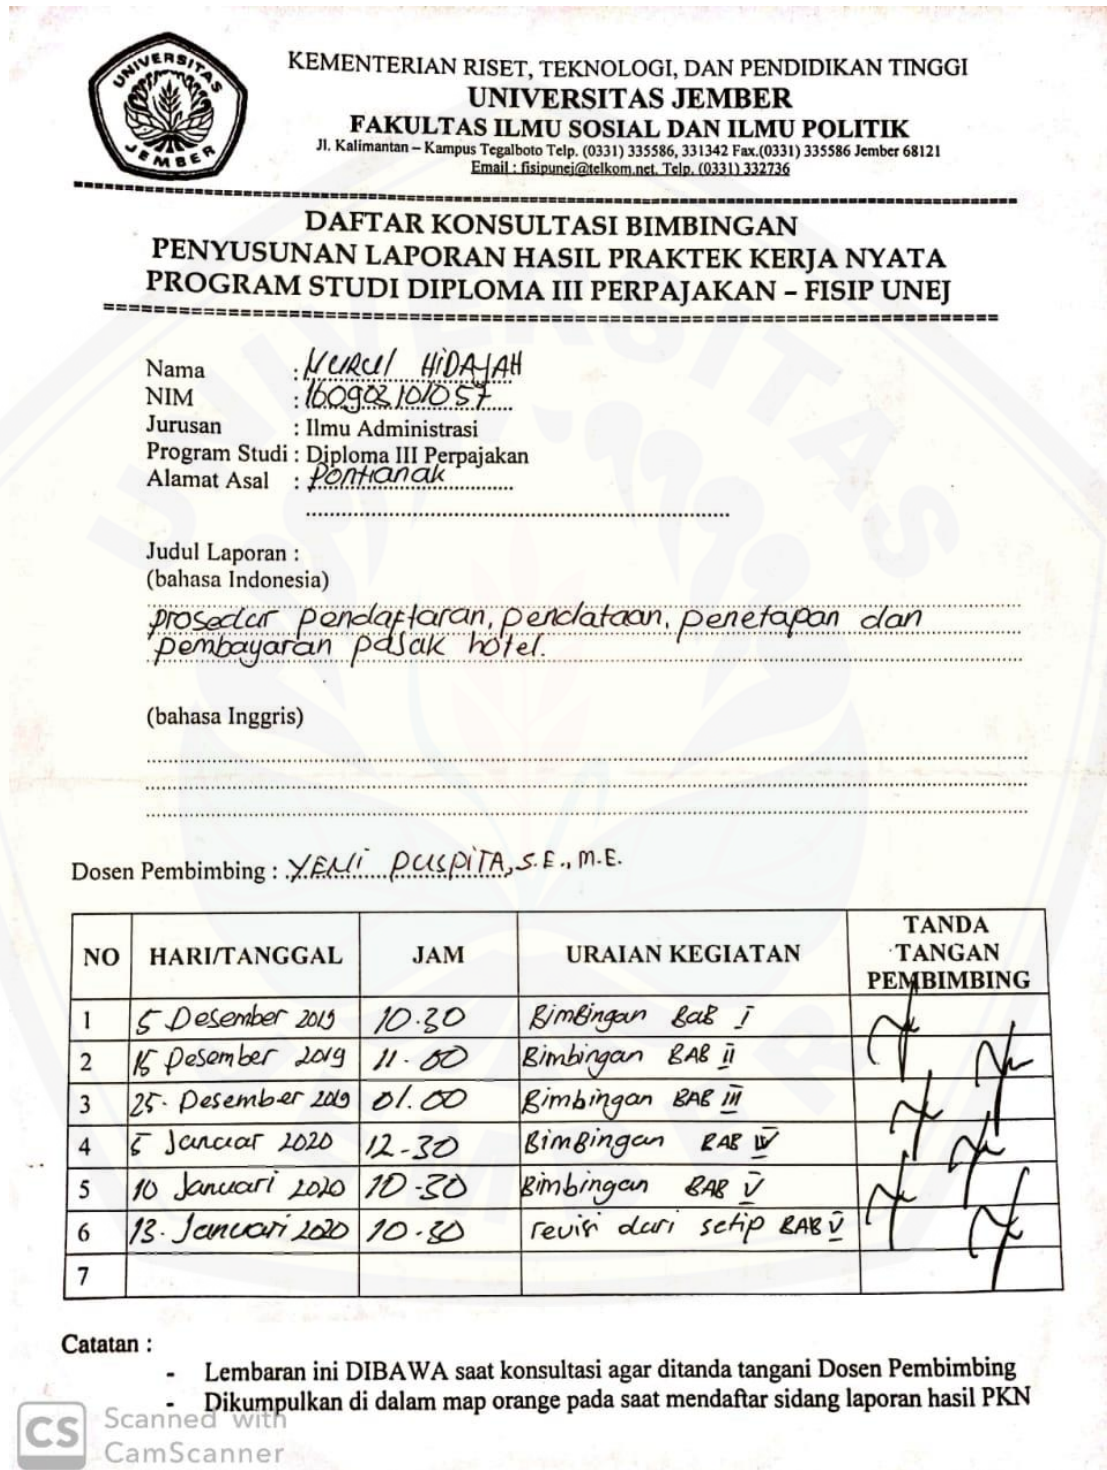 UNIVERSITAS JEMBER
KEMENTERIAN RISET, TEKNOLOGI, DAN PENDIDIKAN TINGGI
UNIVERSITAS JEMBER
FAKULTAS ILMU SOSIAL DAN ILMU POLITIK
Jl. Kalimantan – Kampus Tegalboto Telp. (0331) 335586, 331342 Fax.(0331) 335586 Jember 68121
Email : fisipunej@telkom.net. Telp. (0331) 332736
DAFTAR KONSULTASI BIMBINGAN
PENYUSUNAN LAPORAN HASIL PRAKTEK KERJA NYATA
PROGRAM STUDI DIPLOMA III PERPAJAKAN – FISIP UNEJ
Nama : NURUL HIDAYAH
NIM : 160903101057
Jurusan : Ilmu Administrasi
Program Studi : Diploma III Perpajakan
Alamat Asal : Pontianak
Judul Laporan :
(bahasa Indonesia)
prosedur pendaftaran, pendataan, penetapan dan
pembayaran pajak hotel.
(bahasa Inggris)
Dosen Pembimbing : YENI PUSPITA, S.E., M.E.
NO HARI/TANGGAL JAM URAIAN KEGIATAN TANDA TANGAN PEMBIMBING
1 5 Desember 2019 10.30 Bimbingan BaB I
2 15 Desember 2019 11.00 Bimbingan BAB II
3 25. Desember 2019 01.00 Bimbingan BAB III
4 5 Januar 2020 12-30 Bimbingan BAB IV
5 10 Januari 2020 10-30 Bimbingan BAB V
6 13. Januari 2020 10.30 revisi dari setip BAB V
7
Catatan :
- Lembaran ini DIBAWA saat konsultasi agar ditanda tangani Dosen Pembimbing
- Dikumpulkan di dalam map orange pada saat mendaftar sidang laporan hasil PKN
CS Scanned with
CamScanner